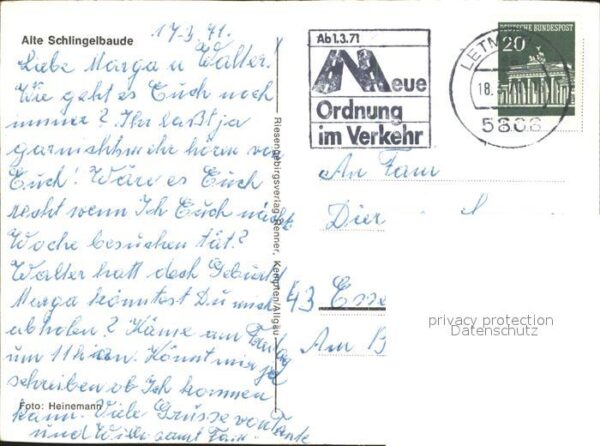 Alte Schlingelbaude
17.3.71.
Liebe Marga u Walter.
Wie geht es Euch noch
immer? Ihr laßt ja
garnichts mehr hören von
Euch! Wäre es Euch
recht wenn Ich Euch nächste
Woche besuchen tät?
Walter hatt doch Geburtst
Marga könntest Du mich
abholen? Käme am Freitag
um 11 h an. Könnt mir ja
schreiben ob Ich kommen
kann. Viele Grüsse von Tante
und Willi samt Fam.
Foto: Heinemann
Riesengebirgsverlag Renner, Kempten/Allgäu
Ab 1.3.71
Neue
Ordnung
im Verkehr
LETM
18.
5808
DEUTSCHE BUNDESPOST
20
An Fam
Dier
43 Esse
Am B
privacy protection
Datenschutz